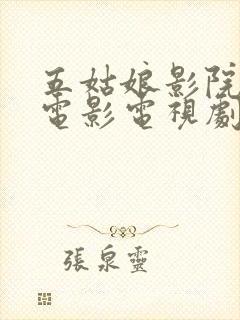 五姑娘影院
電影電視劇
張泉靈